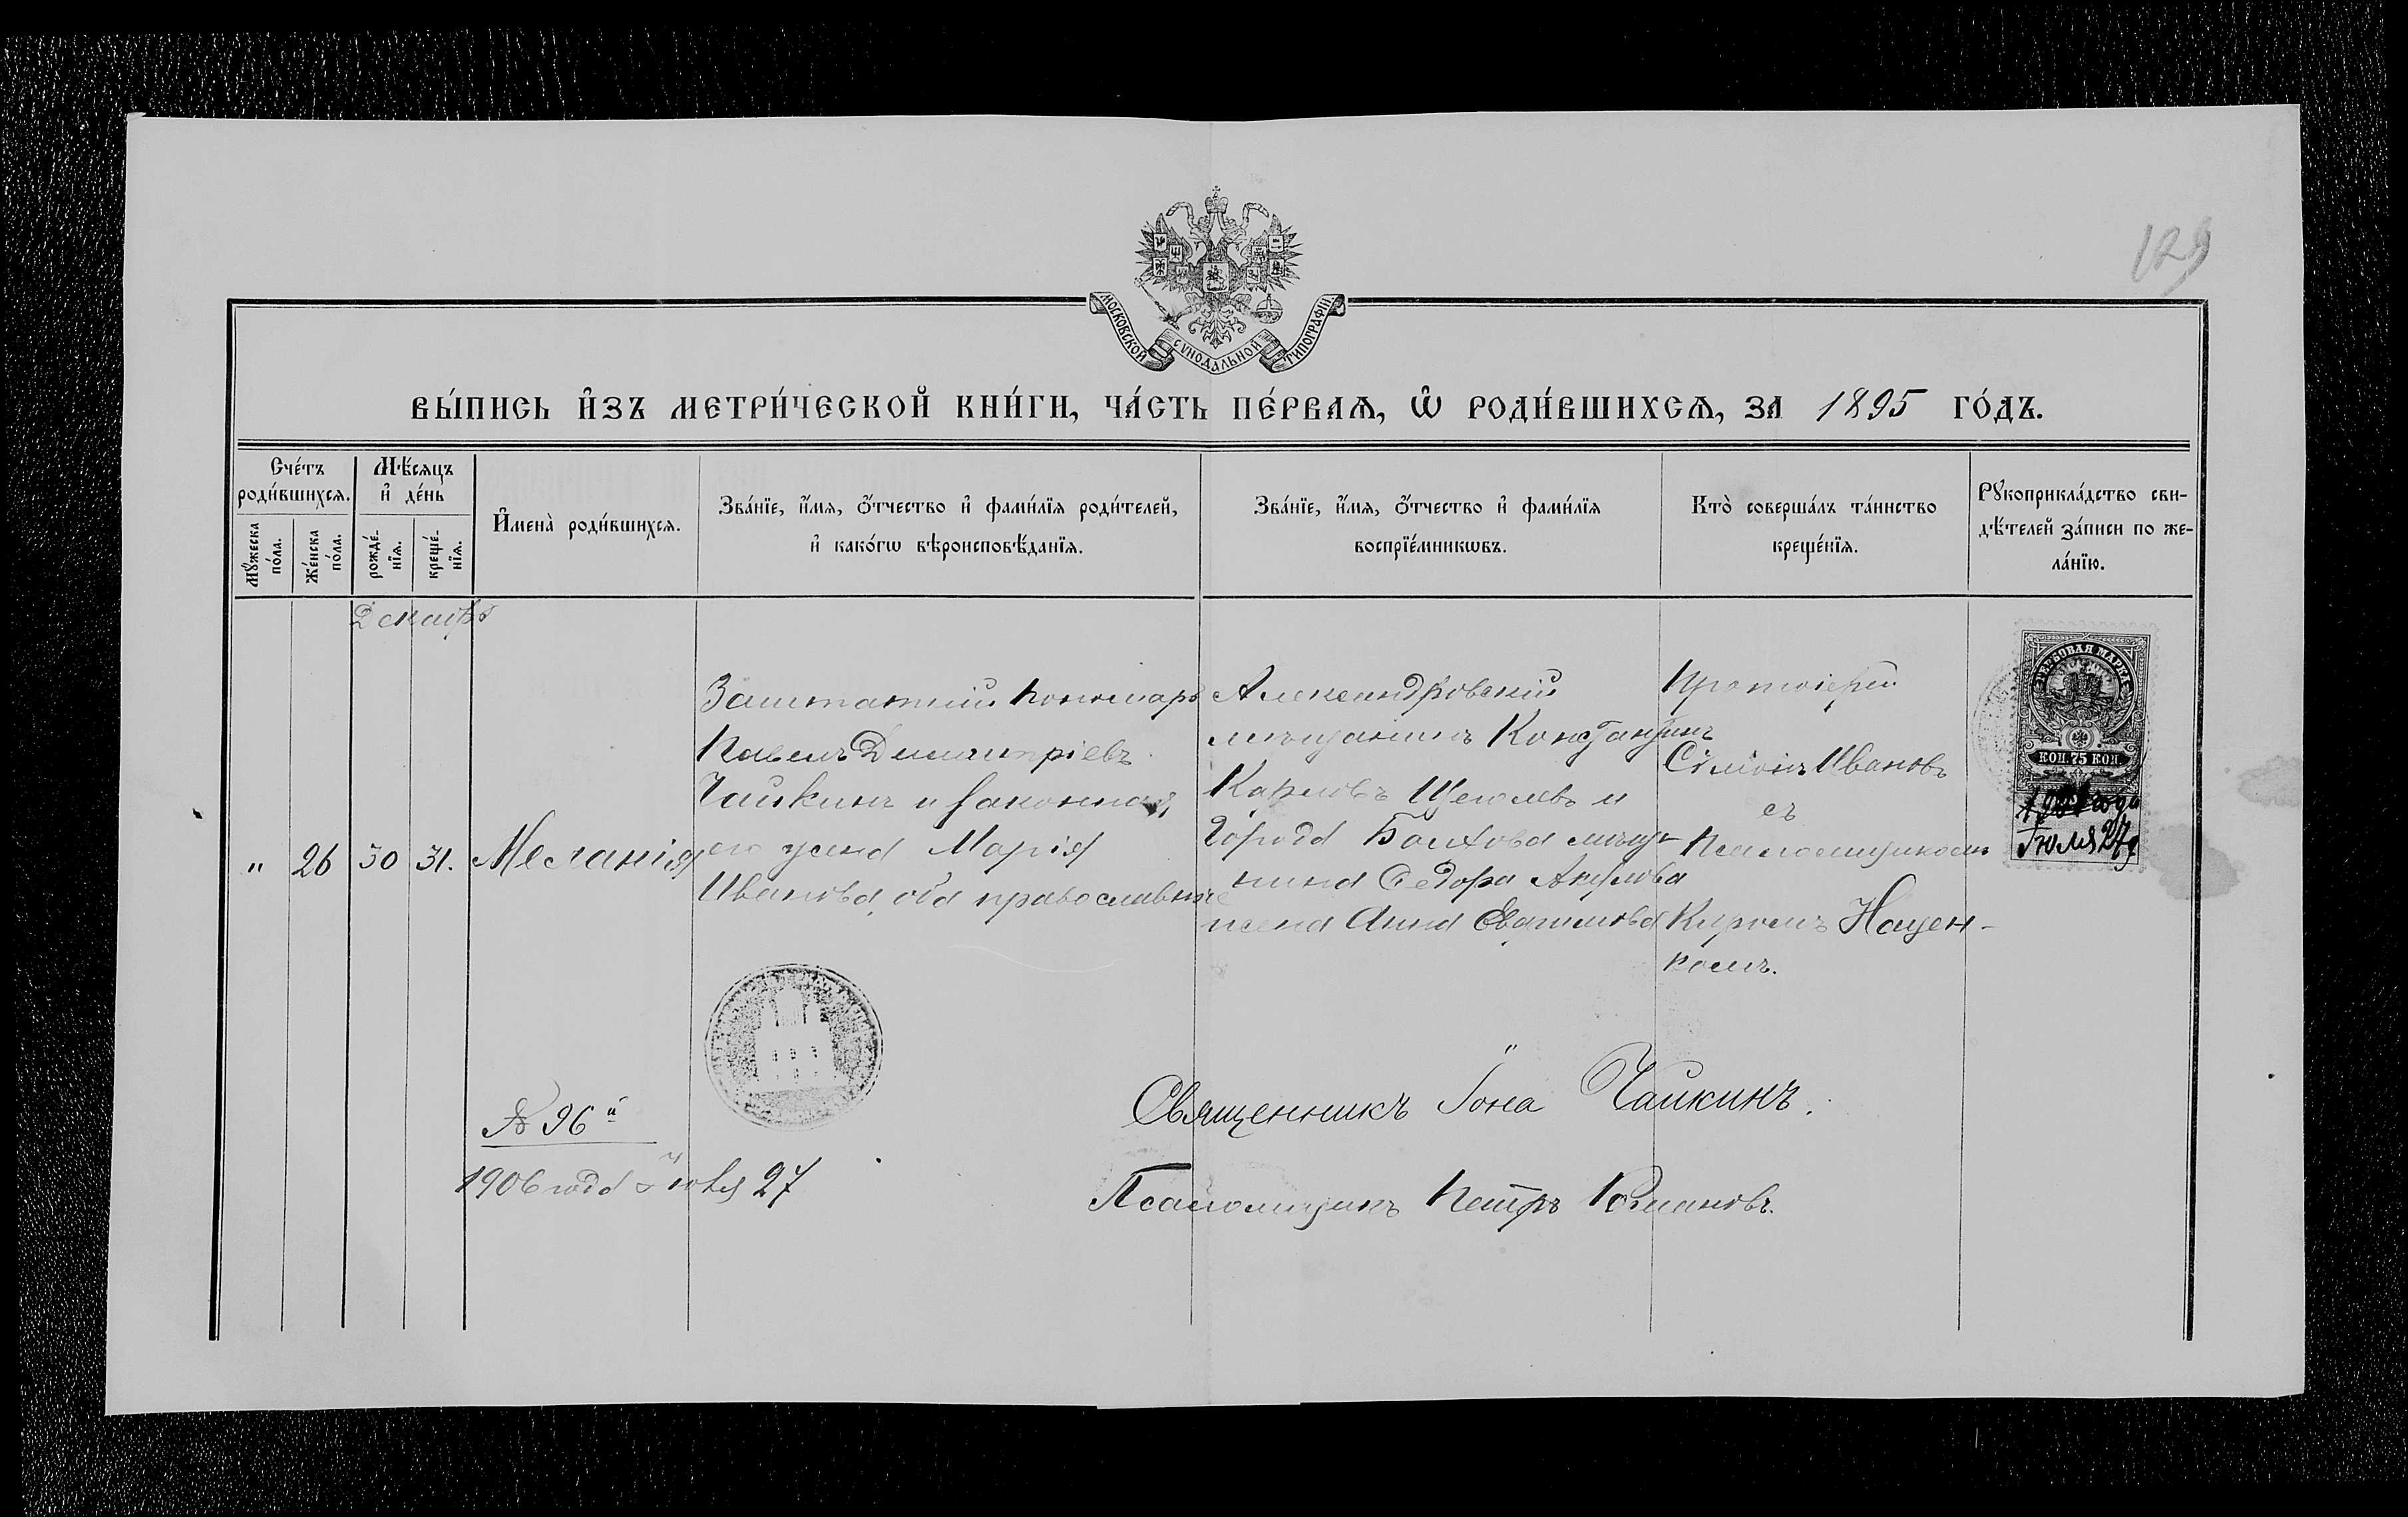 129
МОСКОВСКОЙ СѴНОДАЛЬНОЙ ТИПОГРАФІИ
ВЫ́ПИСЬ И҆ЗЪ МЕТРИ́ЧЕСКОЙ КНИ́ГИ, ЧА́СТЬ ПЕ́РВАѦ, Ѽ РОДИ́ВШИХСѦ, ЗА 1895 ГО́ДЪ.
Сче́тъ
роди́вшихсѧ.
Мꙋ́жеска
по́ла.
Же́нска
по́ла.
Мѣ́сѧцъ
и҆ де́нь
рожде́-
нїѧ.
креще́-
нїѧ.
И҆мена̀ роди́вшихсѧ.
Зва́нїе, и҆́мѧ, ѻ҆́тчество и҆ фами́лїѧ роди́телей,
и҆ како́гѡ вѣроисповѣ́данїѧ.
Зва́нїе, и҆́мѧ, ѻ҆́тчество и҆ фами́лїѧ
воспрїе́мникѡвъ.
Кто̀ соверша́лъ та́инство
креще́нїѧ.
Рꙋкоприкла́дство сви-
дѣ́телей за́писи по же-
ла́нїю.
Декабрь
„ 26 30 31. Меланія
Заштатній пономарь
Павелъ Димитріевъ
Чайкинъ и законная
его жена Марія
Иванова, оба православные
Александровскій
мѣщанинъ Константинъ
Карповъ Щеголевъ и
города Болхова мѣща-
нина Ѳедора Акулова
жена Анна Евфимова
Протоіерей
Сімонъ Ивановъ
съ
Псаломщикомъ
Киромъ Нащен-
комъ.
ГЕРБОВАЯ МАРКА
КОП. 75 КОП.
года
Іюля 27 д
№ 96й
1906 года Іюля 27
Священникъ Іона Чайкинъ.
Псаломщикъ Петръ Романовъ.